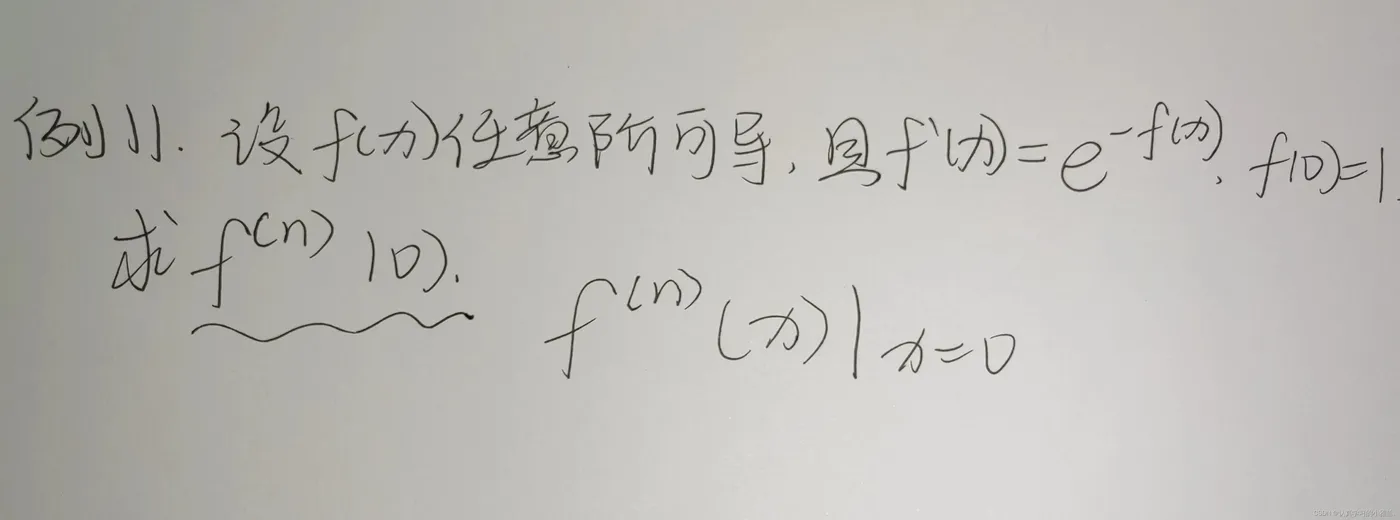 例11. 设f(x)任意阶可导,且f'(x)=e^{-f(x)}, f(0)=1.
求f^{(n)}(0).
f^{(n)}(x)|_{x=0}